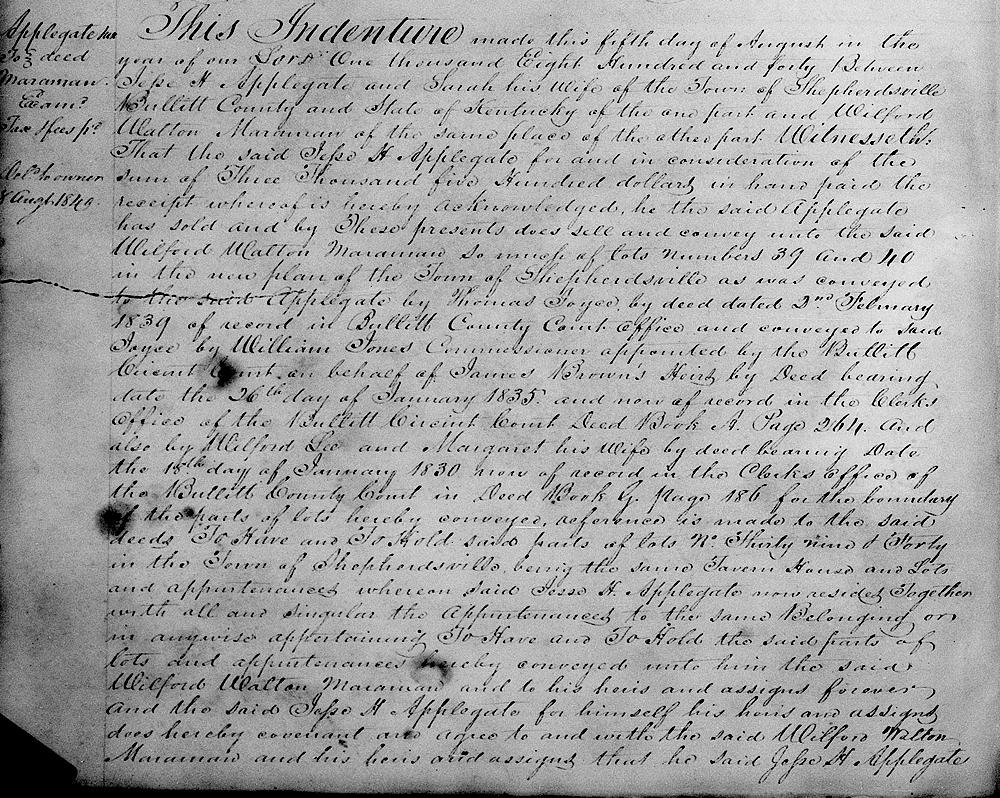 Applegate &ux
To } deed
Maraman
Exam.d
Tax & fees p.d
Del.d to owner
8 Augt. 1840.
This Indenture made this fifth day of August in the
year of our Lord One thousand Eight Hundred and forty Between
Jesse H Applegate and Sarah his Wife of the Town of Shepherdsville
Bullitt County and State of Kentucky of the one part and Wilford
Walton Maraman of the same place of the other part Witnesseth:
That the said Jesse H Applegate for and in consideration of the
sum of Three Thousand five Hundred dollars in hand paid the
receipt whereof is hereby acknowledged, he the said Applegate
has sold and by These presents does sell and convey unto the said
Wilford Walton Maraman so much of lots numbers 39 and 40
in the new plan of the Town of Shepherdsville as was conveyed
to the said Applegate by Thomas Joyce by deed dated 2nd February
1839 of record in Bullitt County Court office and conveyed to said
Joyce by William Jones Commissioner appointed by the Bullitt
Circuit Court, on behalf of James Brown's Heirs by Deed bearing
date the 26th day of January 1835. and now of record in the Clerks
Office of the Bullitt Circuit Court Deed Book A. Page 264. And
also by Wilford Lee and Margaret his Wife by deed bearing Date
the 15th day of January 1830 now of record in the Clerks Office of
the Bullitt County Court in Deed Book G. page 186 for the boundary
of the parts of lots hereby conveyed, reference is made to the said
deeds To Have and To Hold said parts of lots No. Thirty nine & Forty
in the Town of Shepherdsville, being the same Tavern House and Lots
and appurtenances whereon said Jesse H. Applegate now resides Together
with all and singular the Appurtenances to the same Belonging or
in anywise appertaining To Have and To Hold the said parts of
lots and appurtenances hereby conveyed unto him the said
Wilford Walton Maraman and to his heirs and assigns forever
And the said Jesse H Applegate for himself his heirs and assigns
does hereby covenant and agree to and with the said Wilford Walton
Maraman and his heirs and assigns that he said Jesse H Applegate